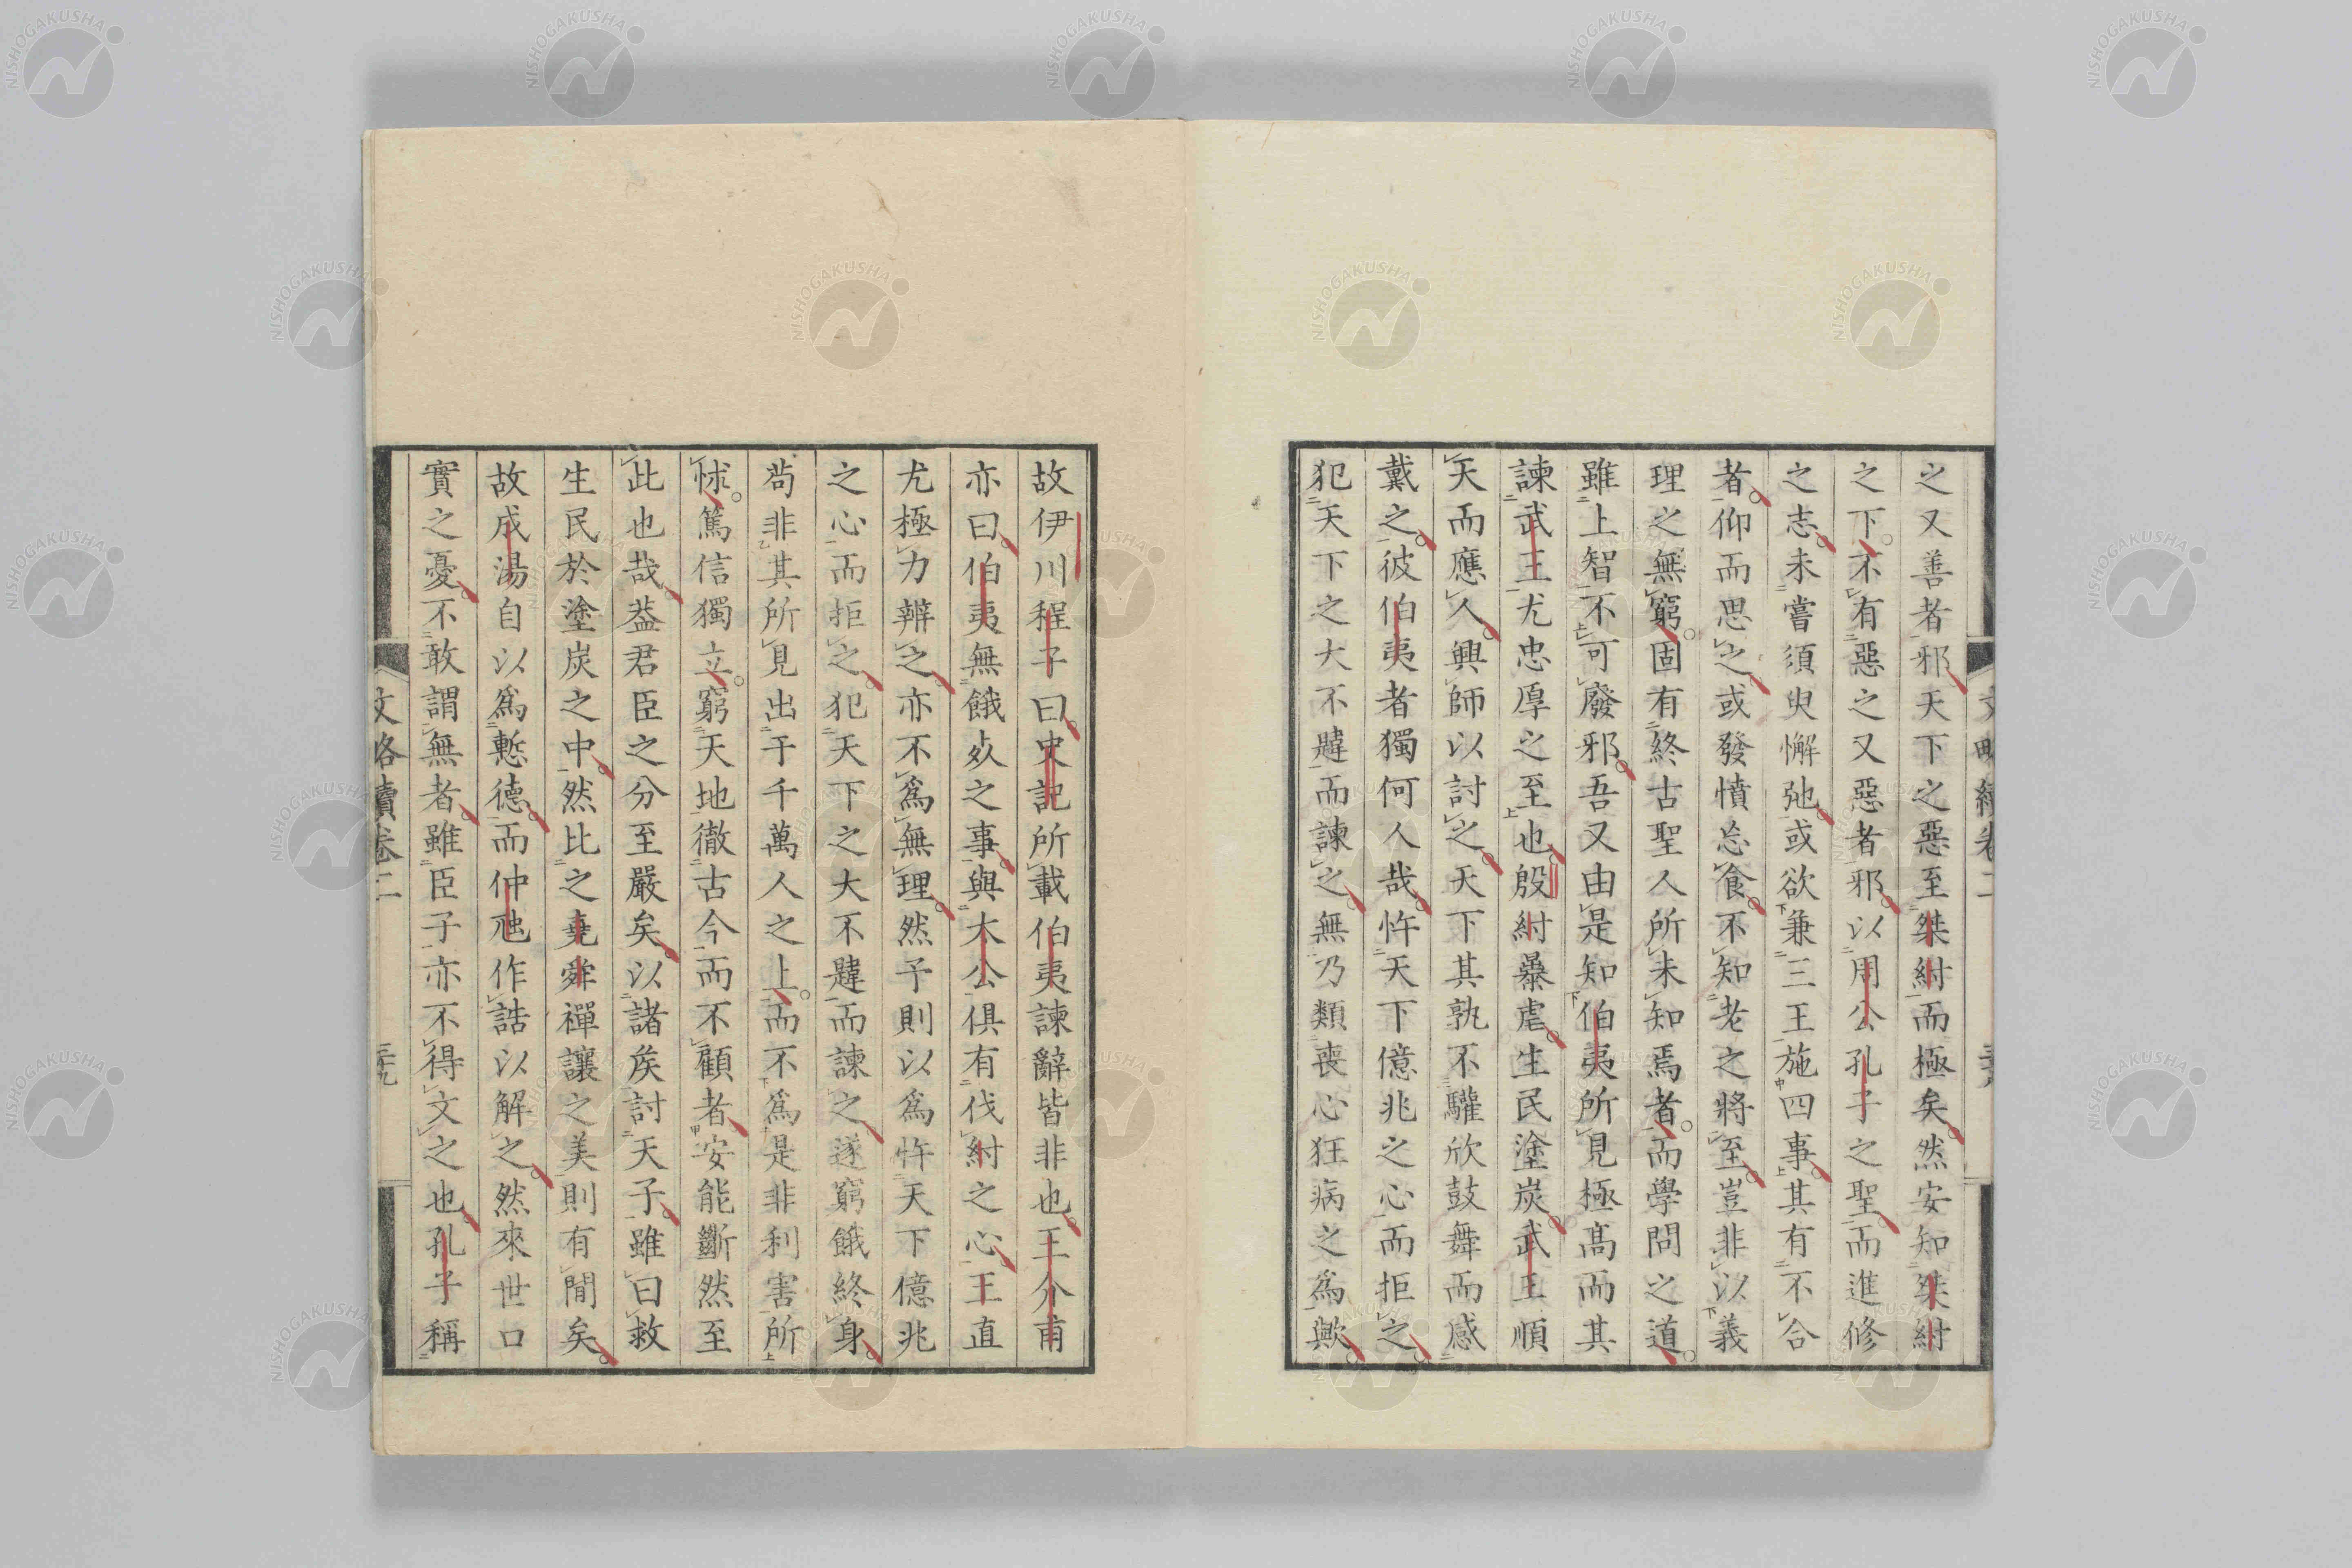 之又善者邪天下之惡至桀紂而極矣然安知桀紂
之下不有惡之又惡者邪以周公孔子之聖而進修
之志未嘗須臾懈弛或欲兼三王施四事其有不合
者仰而思之或發憤忘食不知老之將至豈非以義
理之無窮固有終古聖人所未知焉者而學問之道
雖上智不可廢邪吾又由是知伯夷所見極高而其
諫武王尤忠厚之至也殷紂暴虐生民塗炭武王順
天而應人興師以討之天下其孰不驩欣鼓舞而感
戴之彼伯夷者獨何人哉忤天下億兆之心而拒之
犯天下之大不韙而諫之無乃類喪心狂病之爲歟
故伊川程子曰史記所載伯夷諫辭皆非也王介甫
亦曰伯夷無餓死之事與太公俱有伐紂之心王直
尤極力辨之亦不爲無理然予則以爲忤天下億兆
之心而拒之犯天下之大不韙而諫之遂窮餓終身
苟非其所見出于千萬人之上而不爲是非利害所
怵篤信獨立窮天地徹古今而不顧者安能斷然至
此也哉蓋君臣之分至嚴矣以諸侯討天子雖曰救
生民於塗炭之中然比之堯舜禪讓之美則有間矣
故成湯自以爲慙德而仲虺作誥以解之然來世口
實之憂不敢謂無者雖臣子亦不得文之也孔子稱
文略續卷二
三十九
NISHOGAKUSHA